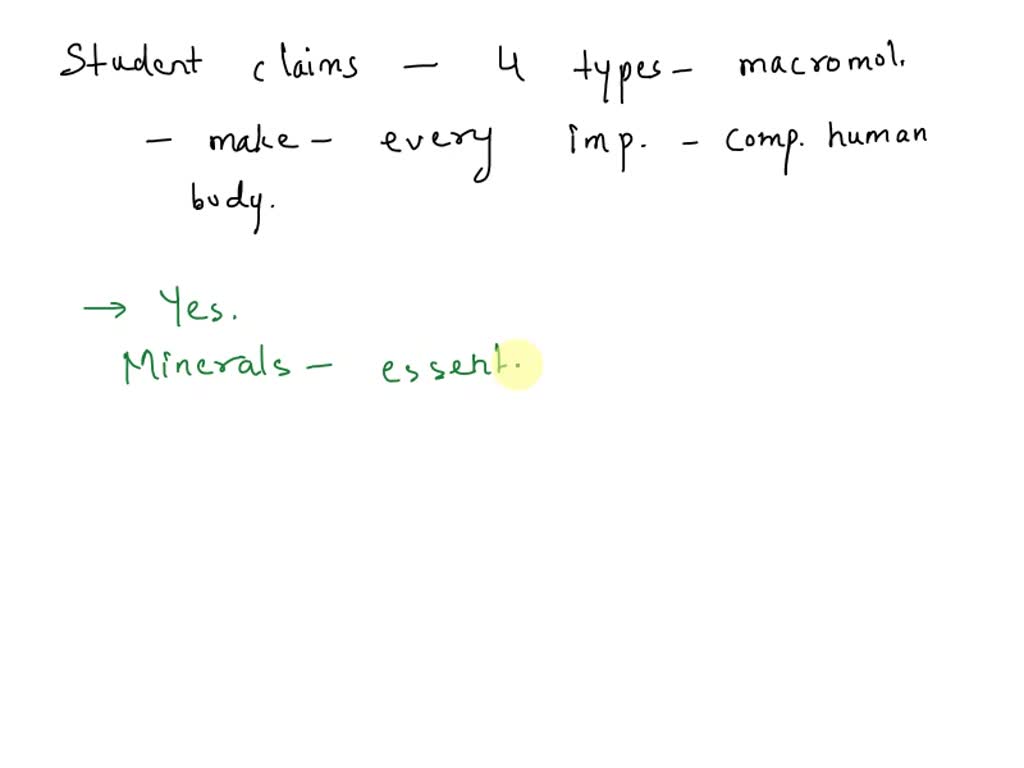 Student claims - 4 types - macromol.
- make - every imp. - comp. human
body.
→ Yes.
Minerals - essent.